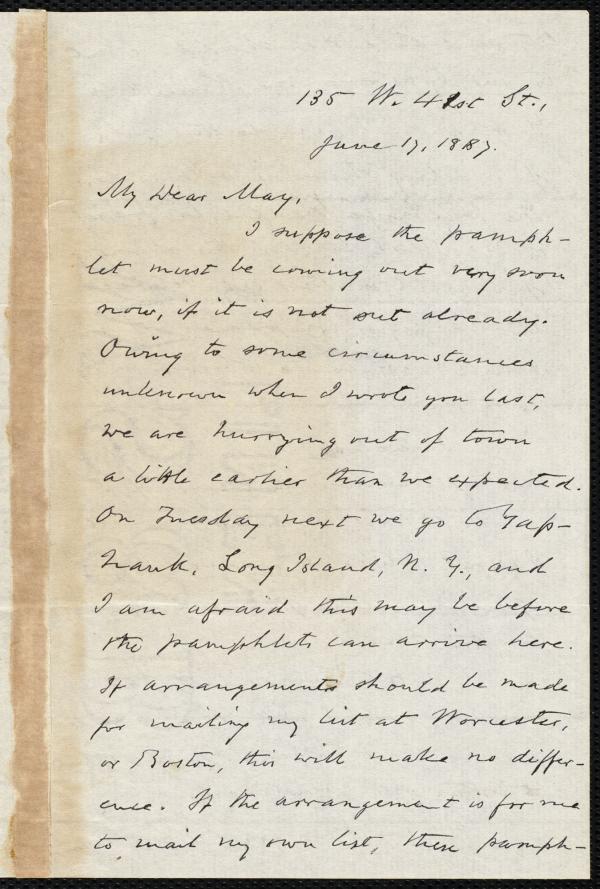 135 W. 41st St.,
June 17, 1887.
My Dear May,
I suppose the pamph-
let must be coming out very soon
now, if it is not out already.
Owing to some circumstances
unknown when I wrote you last,
we are hurrying out of town
a little earlier than we expected.
On Tuesday next we go to Yap-
hank, Long Island, N. Y., and
I am afraid this may be before
the pamphlets can arrive here.
If arrangements should be made
for mailing my list at Worcester,
or Boston, this will make no differ-
ence. If the arrangement is for me
to mail my own list, these pamph-